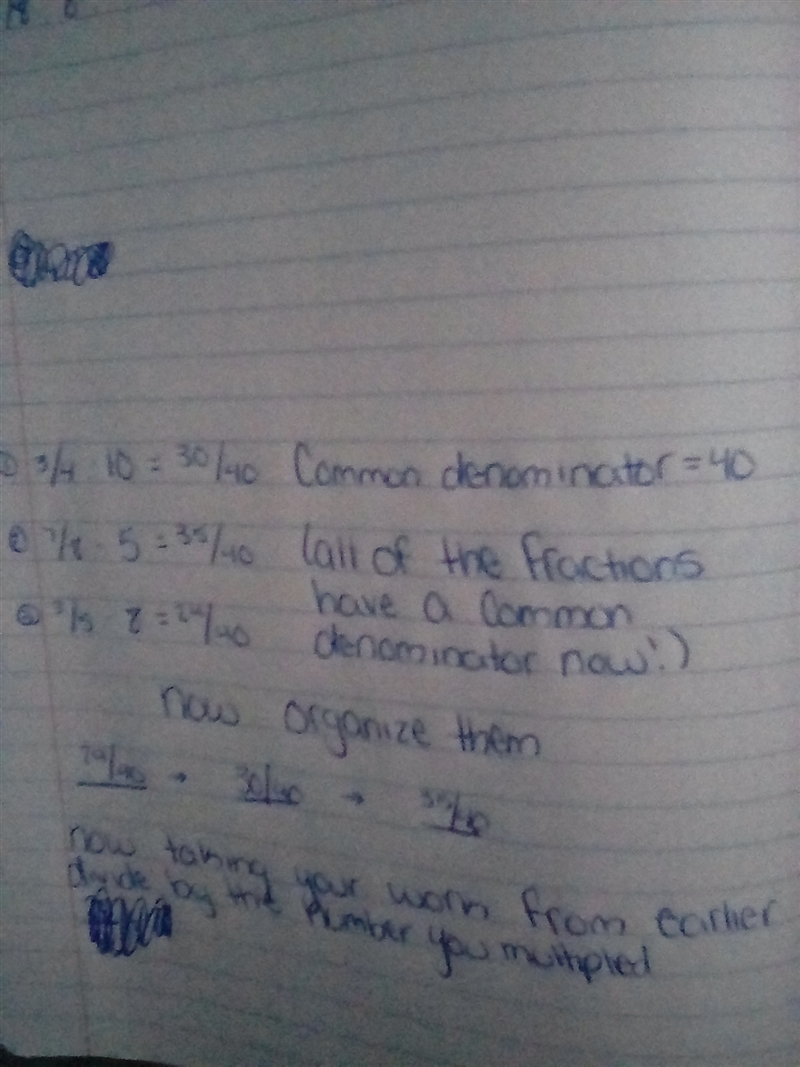 ① 3/4 10 = 30/40 Common denominator = 40
② 7/8 · 5 = 35/40 (all of the fractions
have a common
③ 3/5 8 = 24/40 denominator now :)
now organize them
24/40 → 30/40 → 35/40
now taking your work from earlier
divide by the number you multipled